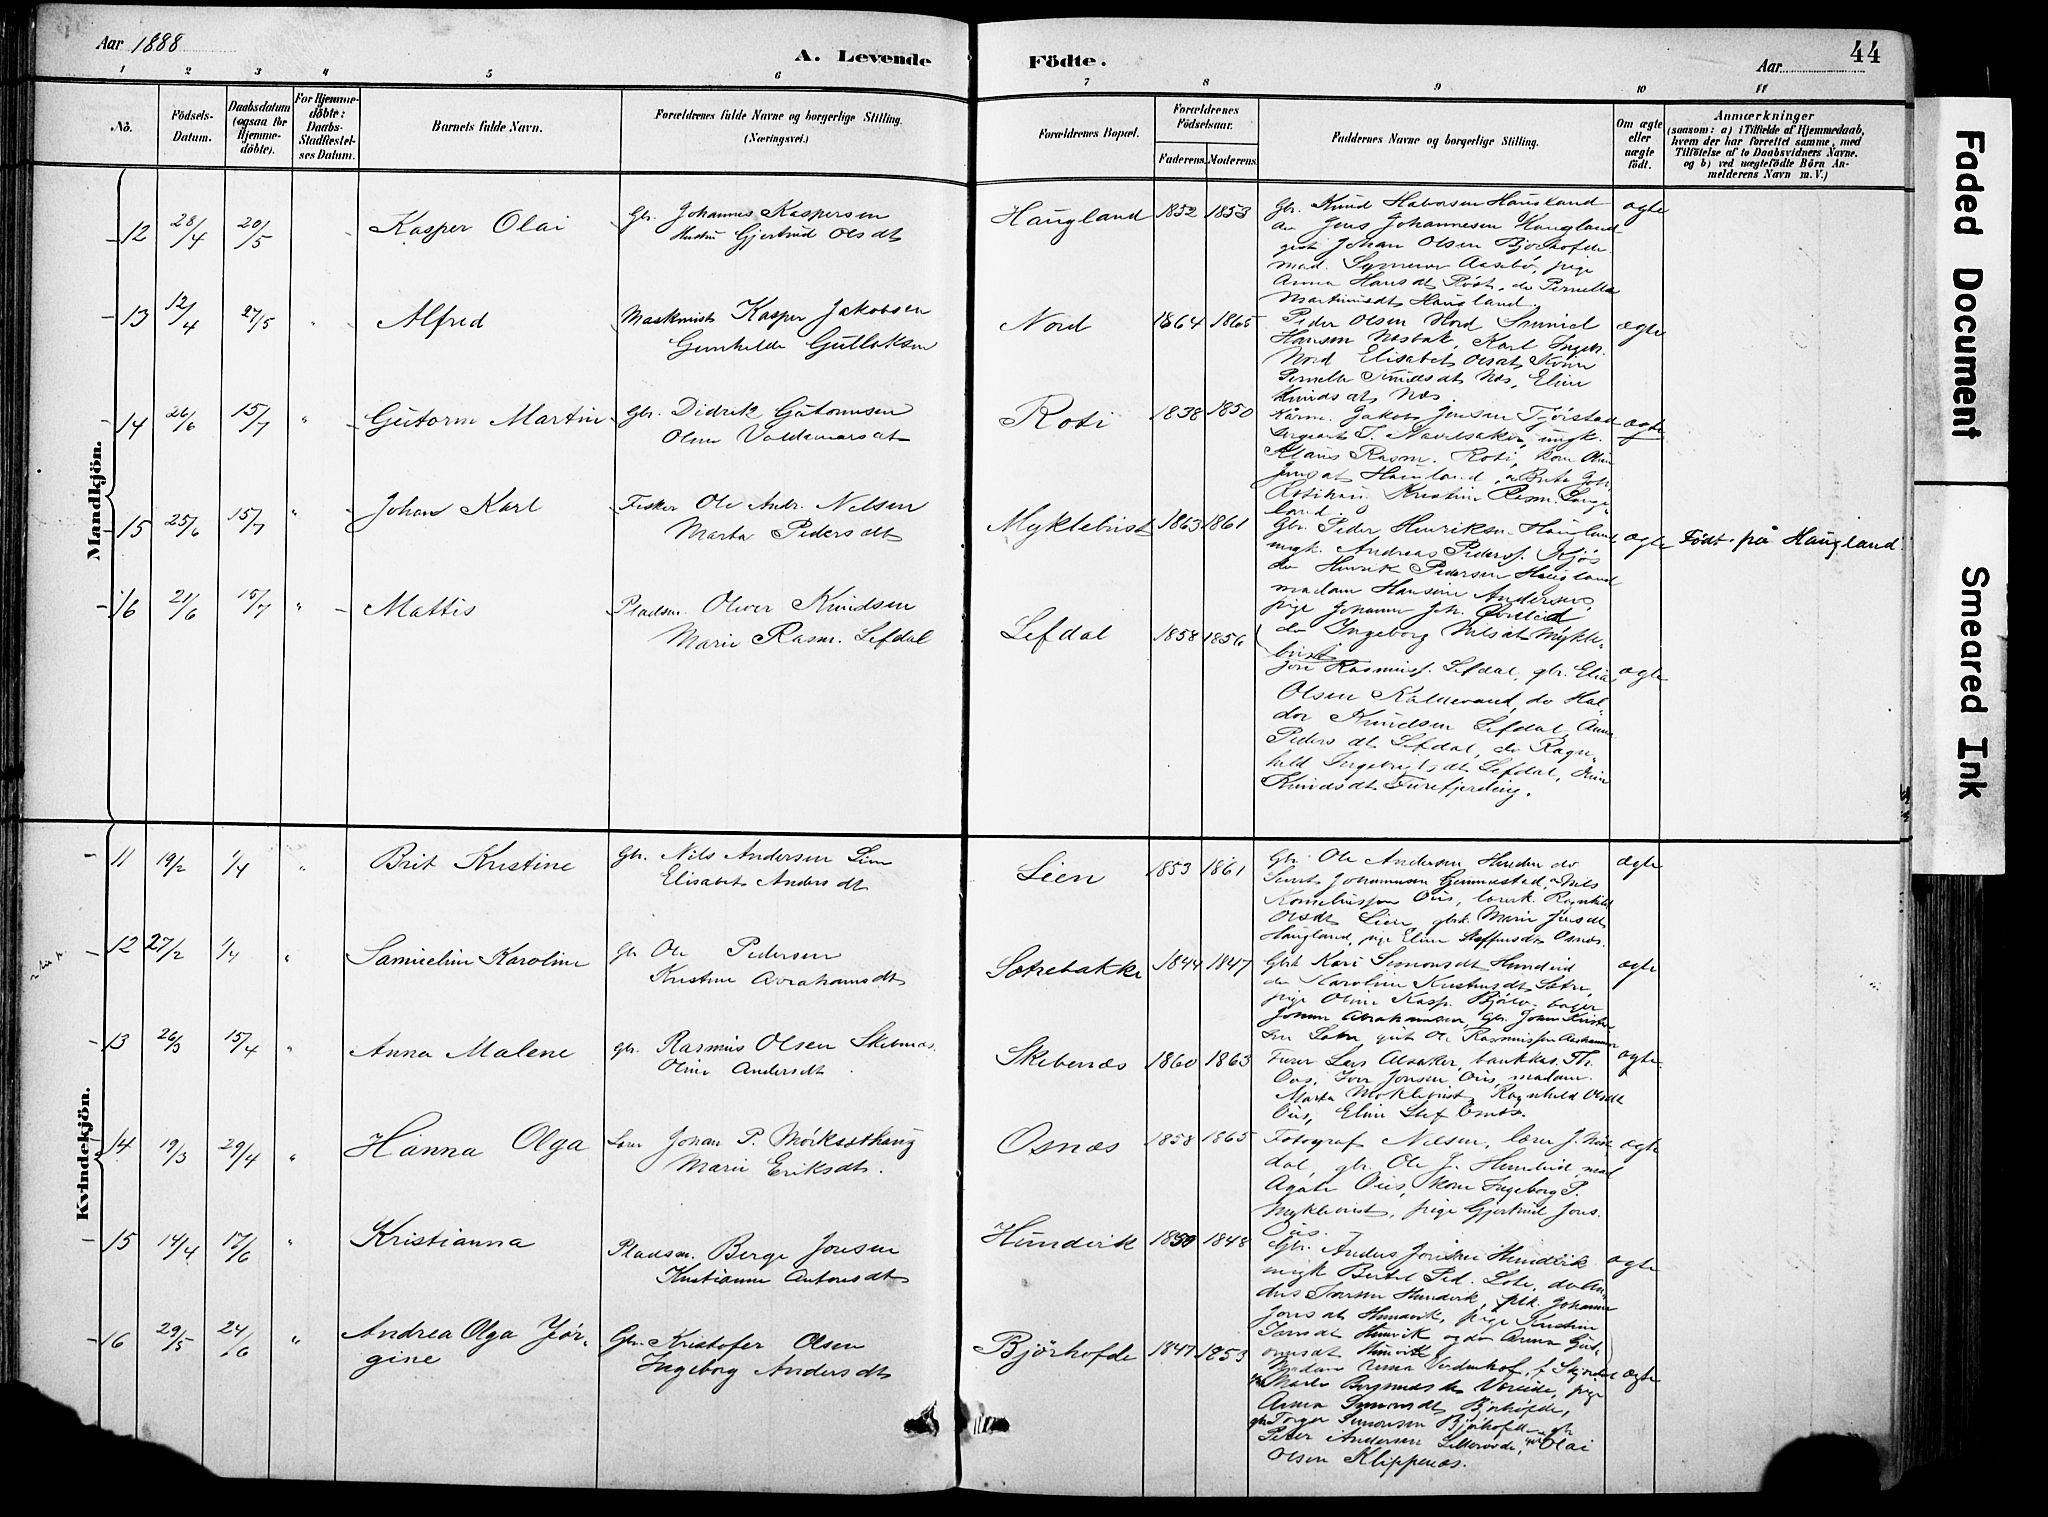 Aar 1888
A. Levende
Födte.
Aar
44
1 2 3 4 5 6 7 8 9 10 11
No.
Födsels-
Datum.
Daabsdatum
(ogsaa for
Hjemme-
döbte).
For Hjemme-
döbte:
Daabs-
Stadfæstel-
ses Datum.
Barnets fulde Navn.
Forældrenes fulde Navne og borgerlige Stilling.
(Næringsvei.)
Forældrenes Bopæl.
Forældrenes
Födselsaar.
Faderens.
Moderens.
Faddernes Navne og borgerlige Stilling.
Om ægte
eller
uægte
födt.
Anmærkninger
(saasom: a) i Tilfælde af Hjemmedaab,
hvem der har forrettet samme, med
Tilföielse af to Daabsvidners Navne,
og b) ved uægtefödte Börn An-
melderens Navn m. V.)
Mandkjön.
12 28/4 20/5 Kasper Olai
Gbr. Johannes Kaspersen
Hustru Gjertrud Olsdt
Haugland 1852 1853
Gbr. Knud Haborsen Haugland
do Jens Johannesen Haugland
gift Johan Olsen Bjorhofde
mad. Synneve Aasebö, pige
Anna Hansdt Röst, do Pernella
Martinusdt Haugland.
ægte
13 12/4 27/5 " Alfred
Maskinist Kasper Jakobsen
Gunhilde Gullaksen
Nord 1864 1865
Peder Olsen Nord
Hansen Nesbak, Karl
Nord Elisabet
Pernella Knudsdt Næs, Eline
Knudsdt Næs.
ægte
14 26/6 15/7 " Gutorm Martin
Gbr. Didrik Gutormsen
Oline Valdemarsdt
Roti 1838 1850
Jakob Jensen
ungk.
Klaus Rasm. Roti, kone Oline
Jensdt Haugland
Kristine Rasm.
land.
ægte
15 25/6 15/7 " Johan Karl
Fisker Ole Andr. Nilsen
Marta Pedersdt
Myklebust 1863 1861
Gbr. Peder Henriksen Haugland
ungk. Andreas Peders. Kjös
do Henrik Pedersen Haugland
madam Hansine Andersen,
pige Johanne Joh.
do Ingeborg Nilsdt Mykle-
bust
ægte
Födt på Haugland
16 21/6 15/7 " Mattis
Pladsm. Oliver Knudsen
Marie Rasm. Lefdal
Lefdal 1858 1856
Jon Rasmuss. Lefdal, gbr. Elias
Olsen Kalnevand, do Hal-
dor Knudsen Lefdal, Anna
Pedersdt Lefdal, do Ragn-
hild Ingebrigtsdt Lefdal,
Knudsdt Furefjerding.
ægte
Kvindekjön.
11 19/2 1/4 " Brit Kristine
Gbr. Nils Andersen Lien
Elisabet Andersdt
Lien 1853 1861
Gbr. Ole Andersen, Hunden do
Sivert Johannesen Gimmestad, Nils
Korneliussen Ous, lærerk. Ragnhild
Olsdt Lien, gbrk. Marie Jensdt
Haugland, pige Eline Steffensdt Osnæs.
ægte
12 27/2 1/4 " Samueline Karoline
Gbr. Ole Pedersen
Kristine Abrahamsdt
Sætrebakke 1844 1847
Gbrk Kari Simonsdt Hundeid
do Karoline Kristensdt Sætre,
pige Oline Kasp. Bjölv. bager
Jonna Abrahamsen, gbr. Johan Kristian-
sen Sætre gift Ole Rasmussen
ægte
13 26/3 15/4 " Anna Malene
gbr. Rasmus Olsen Skibenæs.
Oline Andersdt
Skibenæs 1860 1863
Lars Alsaker, bankkas. Th.
Ous, Iver Jonsen Ous, madam.
Marta Myklebust, Ragnhild Olsdt
Ous, Eline Stef Osnæs.
ægte
14 19/3 29/4 " Hanna Olga
Lærer Johan P. Mörksethaug
Marie Eriksdt.
Osnæs 1858 1865
Fotograf Nilsen, lærer J. Nor-
dal, gbr. Ole J. Hundeid, mad
Agate Ous, kone Ingeborg P.
Myklebust, pige Gjertrud Jons.
Ous.
ægte
15 14/4 17/6 " Kristianna
Pladsm. Berge Jonsen
Kristianne Antonsdt
Hundvik 1850 1848
Gbr. Anders Jonsen Hundvik
ungk Bertel Ped. Lote, do An-
ders Hundvik, plk. Johanna
Jonsdt Hundvik, pige Kristine
Hundvik og do Anna Gut-
ormsdt Hundvik
ægte
16 29/5 24/6 " Andrea Olga Jör-
gine
Gbr. Kristofer Olsen
Ingeborg Andersdt
Björhofde 1847 1853
Madam Anna
Marta Voreide, pige
Anna Simonsdt Bjørhofde,
gbr. Torger Simonsen Bjørhofde, gbr
Peter Andersen Lillevoide, Olai
Olsen Klippenæs.
ægte
Faded Document
Smeared Ink